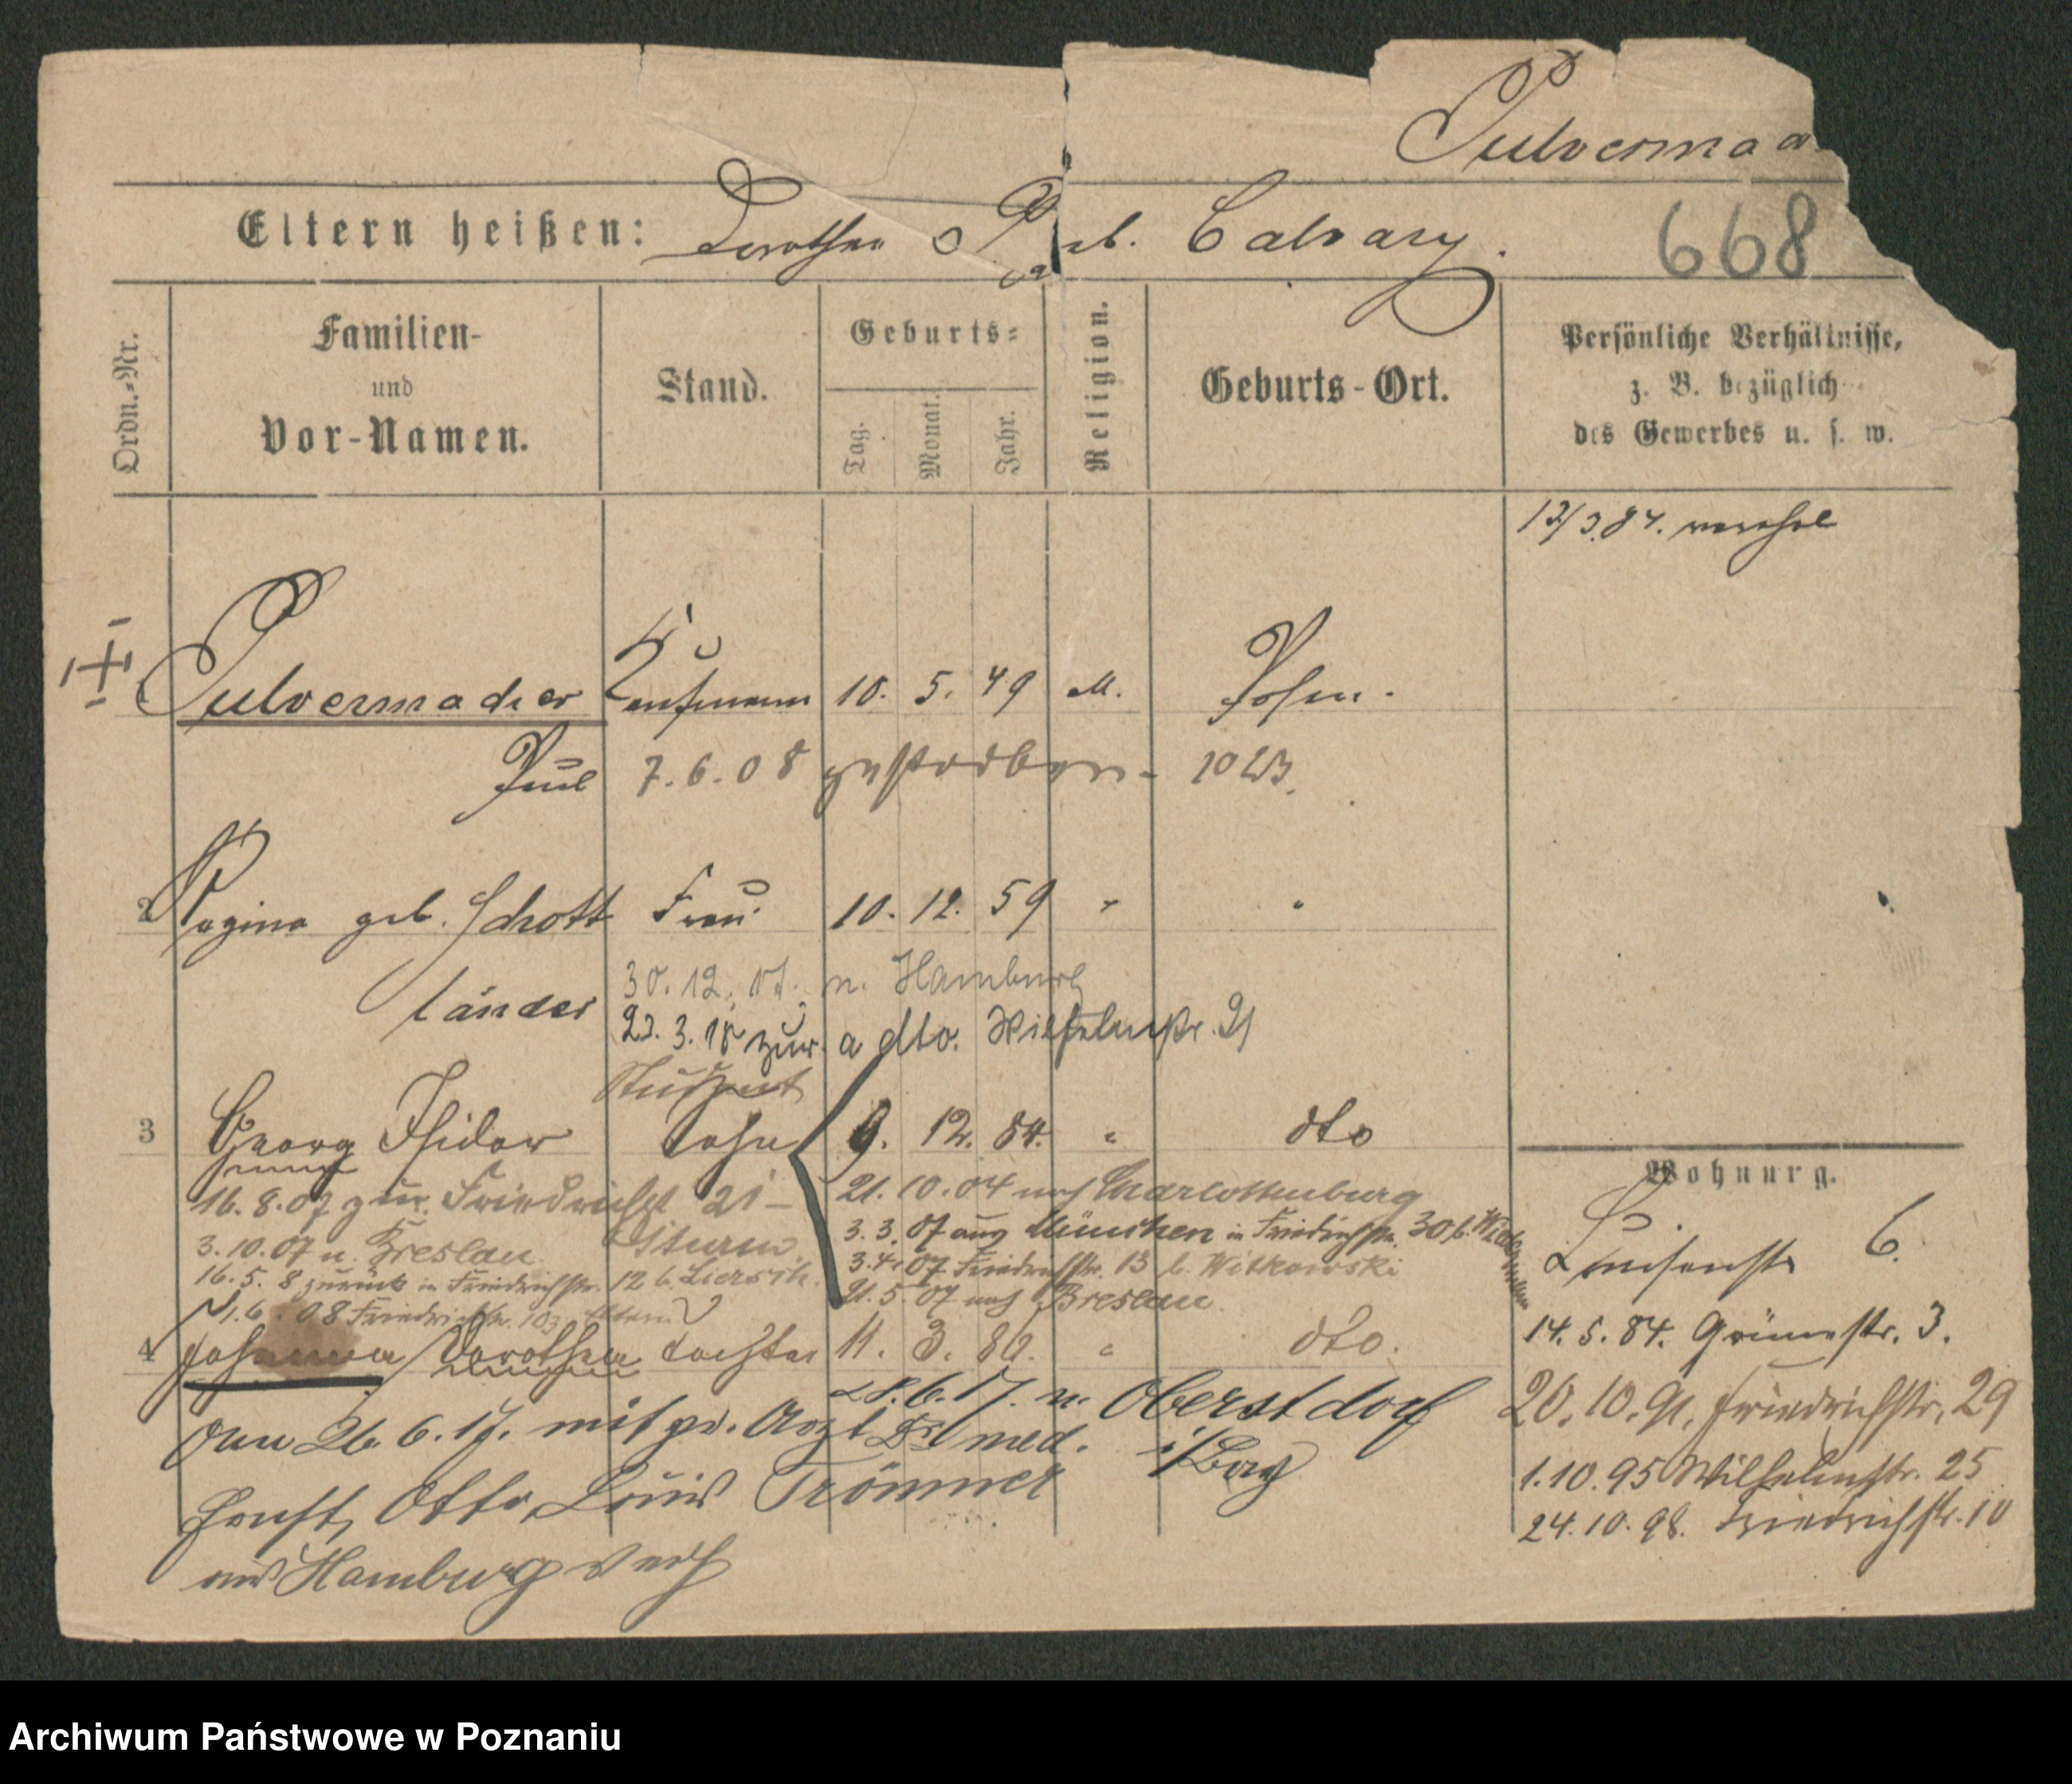 Pulvermac
Eltern heißen: Dorothea geb. Calvary.
668
Ordn.-Nr.
Familien- und Vor-Namen.
Stand.
Geburts-
Tag.
Monat.
Jahr.
Religion.
Geburts-Ort.
Persönliche Verhältnisse,
z. B. bezüglich
des Gewerbes u. s. w.
13/3.84.
Pulvermacher Kaufmann 10. 5. 49 M. Posen.
Paul 7.6.08 gestorben - 10 W3.
2 Regina geb. Schott Frau 10. 12. 59 " "
länder
30.12.17. n. Hamburg
23.3.18 zur. a dto. Wilhelmstr. 21
Student
3 Georg Isidor Sohn 9. 12. 84. " dto
16.8.07 zur. Friedrichstr 21 -
Sturm.
3.10.07 n. Breslau
16.5.8 zurück in Friedrichstr. 12 b. Liersch.
1.6.08 Friedrichstr. 10 Eltern
21.10.04 nach Charlottenburg
3.3.07 aus München in Friedrichstr. 30 b.
3.4.07 Friedrichstr. 13 b. Witkowski
21.5.07 nach Breslau
4 Johanna Dorothea Tochter 11. 3. 86. " dto.
28.6.17. n. Oberstdorf
i/Bay
Am 26.6.17. mit pr. Arzt Dr med.
Ernst, Otto, Louis Trömner
aus Hamburg verh
Wohnung.
Luisenstr 6.
14.5.84. Grünestr. 3.
20.10.91. Friedrichstr. 29
1.10.95 Wilhelmstr. 25
24.10.98. Friedrichstr. 10
Archiwum Państwowe w Poznaniu